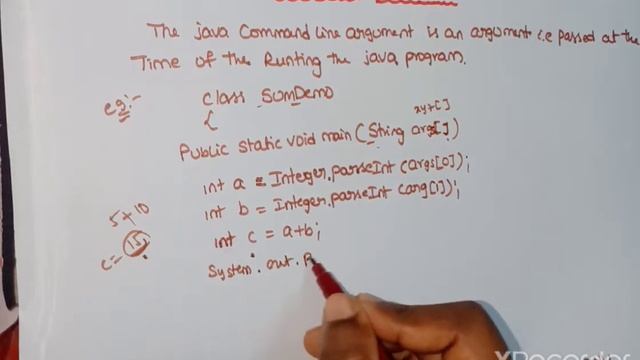 The java Command line argument is an argument i.e passed at the
Time of the Runting the java program.
eg:-
class SUMDemo
{
xy+[]
Public static void main (String args[])
int a = Integer.parseInt (args[0]);
int b = Integer.parseInt (arg[1]);
5+10
int c = a+b;
c= 15
System. out. P